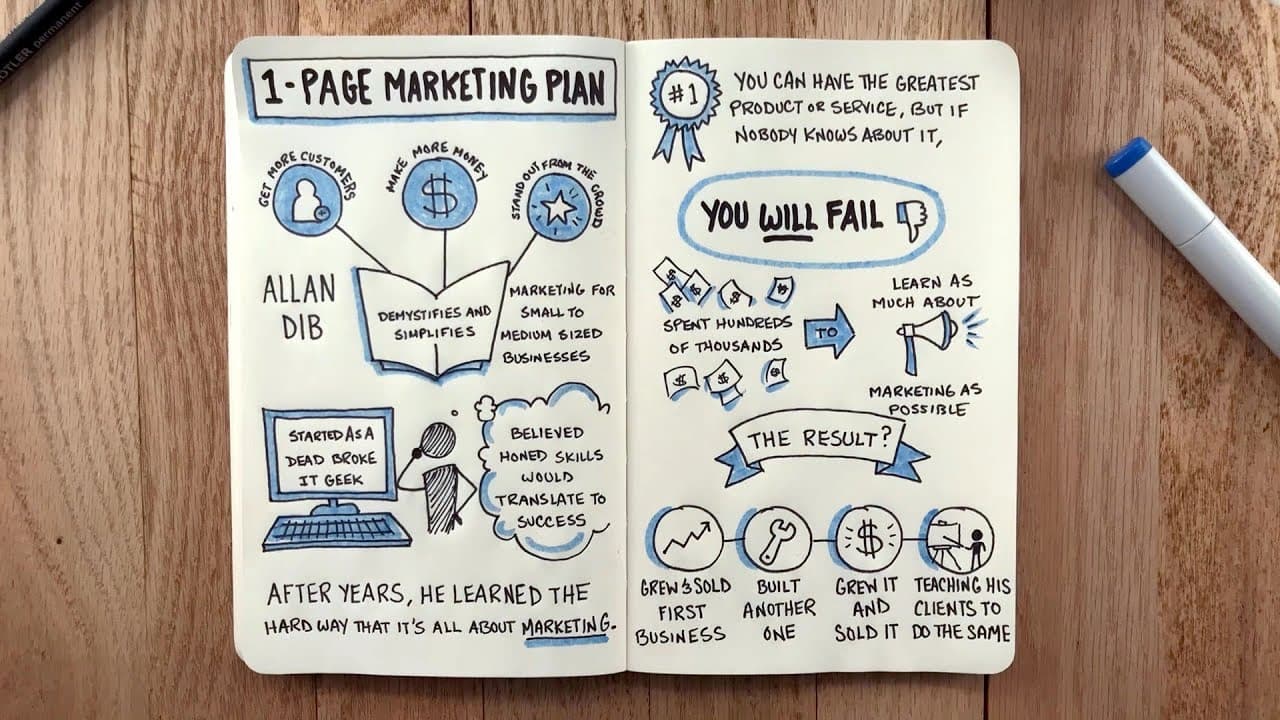 STAEDTLER permanent
1-PAGE MARKETING PLAN
GET MORE CUSTOMERS
MAKE MORE MONEY
$
STAND OUT FROM THE CROWD
ALLAN
DIB
DEMYSTIFIES AND
SIMPLIFIES
MARKETING FOR
SMALL TO
MEDIUM SIZED
BUSINESSES
STARTED AS A
DEAD BROKE
IT GEEK
BELIEVED
HONED SKILLS
WOULD
TRANSLATE TO
SUCCESS
AFTER YEARS, HE LEARNED THE
HARD WAY THAT IT'S ALL ABOUT MARKETING.
#1
YOU CAN HAVE THE GREATEST
PRODUCT OR SERVICE, BUT IF
NOBODY KNOWS ABOUT IT,
YOU WILL FAIL
$ $ $ $ $
SPENT HUNDREDS
OF THOUSANDS
$ $ $
TO
LEARN AS
MUCH ABOUT
MARKETING AS
POSSIBLE
THE RESULT?
GREW & SOLD
FIRST
BUSINESS
BUILT
ANOTHER
ONE
$
GREW IT
AND
SOLD IT
TEACHING HIS
CLIENTS TO
DO THE SAME